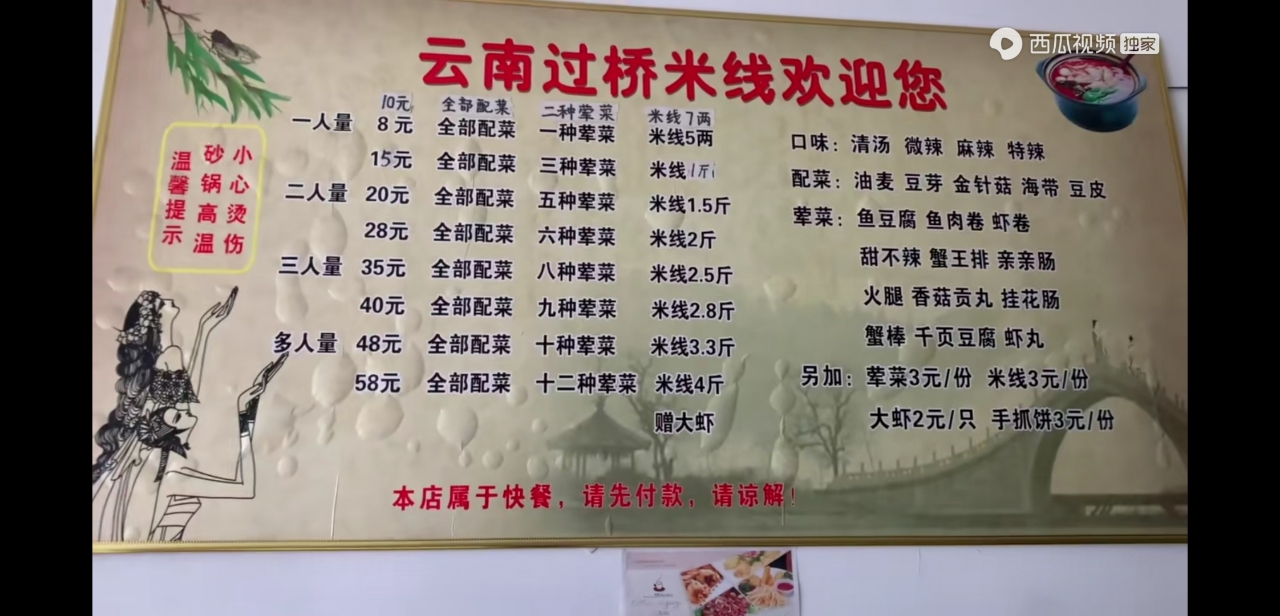 西瓜视频 独家
云南过桥米线欢迎您
温馨提示
砂锅高温
小心烫伤
10元 全部配菜 二种荤菜 米线7两
一人量 8元 全部配菜 一种荤菜 米线5两
15元 全部配菜 三种荤菜 米线1斤
二人量 20元 全部配菜 五种荤菜 米线1.5斤
28元 全部配菜 六种荤菜 米线2斤
三人量 35元 全部配菜 八种荤菜 米线2.5斤
40元 全部配菜 九种荤菜 米线2.8斤
多人量 48元 全部配菜 十种荤菜 米线3.3斤
58元 全部配菜 十二种荤菜 米线4斤
赠大虾
口味：清汤 微辣 麻辣 特辣
配菜：油麦 豆芽 金针菇 海带 豆皮
荤菜：鱼豆腐 鱼肉卷 虾卷
甜不辣 蟹王排 亲亲肠
火腿 香菇贡丸 挂花肠
蟹棒 千页豆腐 虾丸
另加：荤菜3元/份 米线3元/份
大虾2元/只 手抓饼3元/份
本店属于快餐，请先付款，请谅解！